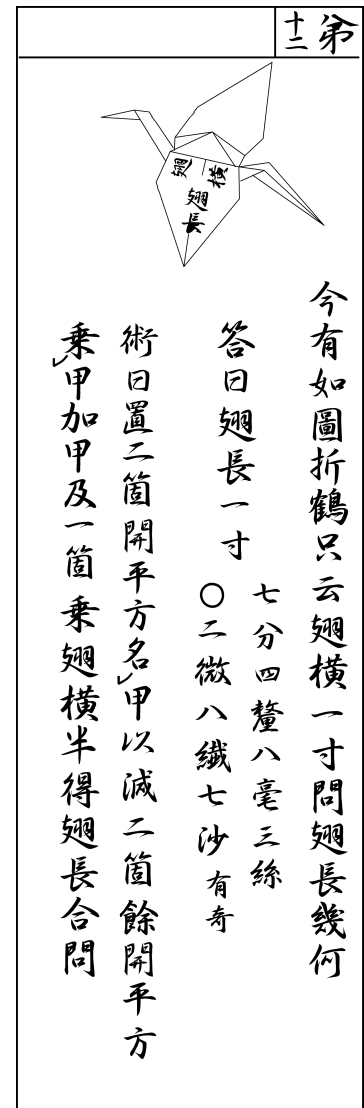 第十二
翅横
翅長
今有如圖折鶴只云翅横一寸問翅長幾何
答曰翅長一寸
七分四釐八毫三絲
〇二微八纖七沙有奇
術曰置二箇開平方名甲以減二箇餘開平方
乗甲加甲及一箇乗翅横半得翅長合問